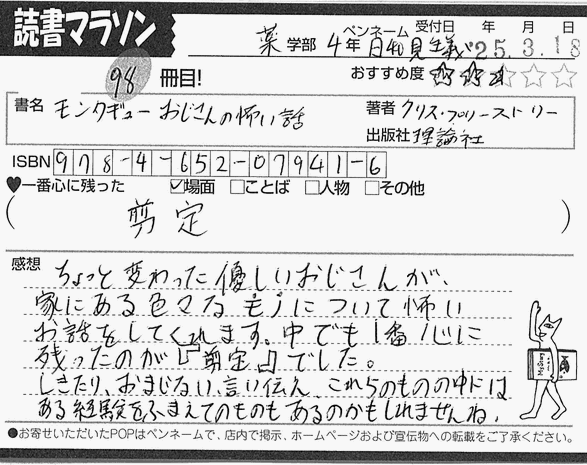 読書マラソン
薬学部 4年 ペンネーム 日和見主義 受付日 年 月 日 25.3.18
98 冊目!
おすすめ度 ☆☆☆☆☆
書名 モンタギューおじさんの怖い話
著者 クリス・プリーストリー
出版社 理論社
ISBN 978-4-652-07941-6
♥一番心に残った ☑場面 □ことば □人物 □その他
( 剪定 )
感想
ちょっと変わった優しいおじさんが、
家にある色々なモノについて怖い
お話をしてくれます。中でも1番心に
残ったのが『剪定』でした。
しきたり、おまじない、言い伝え、これらのものの中には
ある経験をふまえてのものもあるのかもしれませんね。
●お寄せいただいたPOPはペンネームで、店内で掲示、ホームページおよび宣伝物への転載をご了承ください。